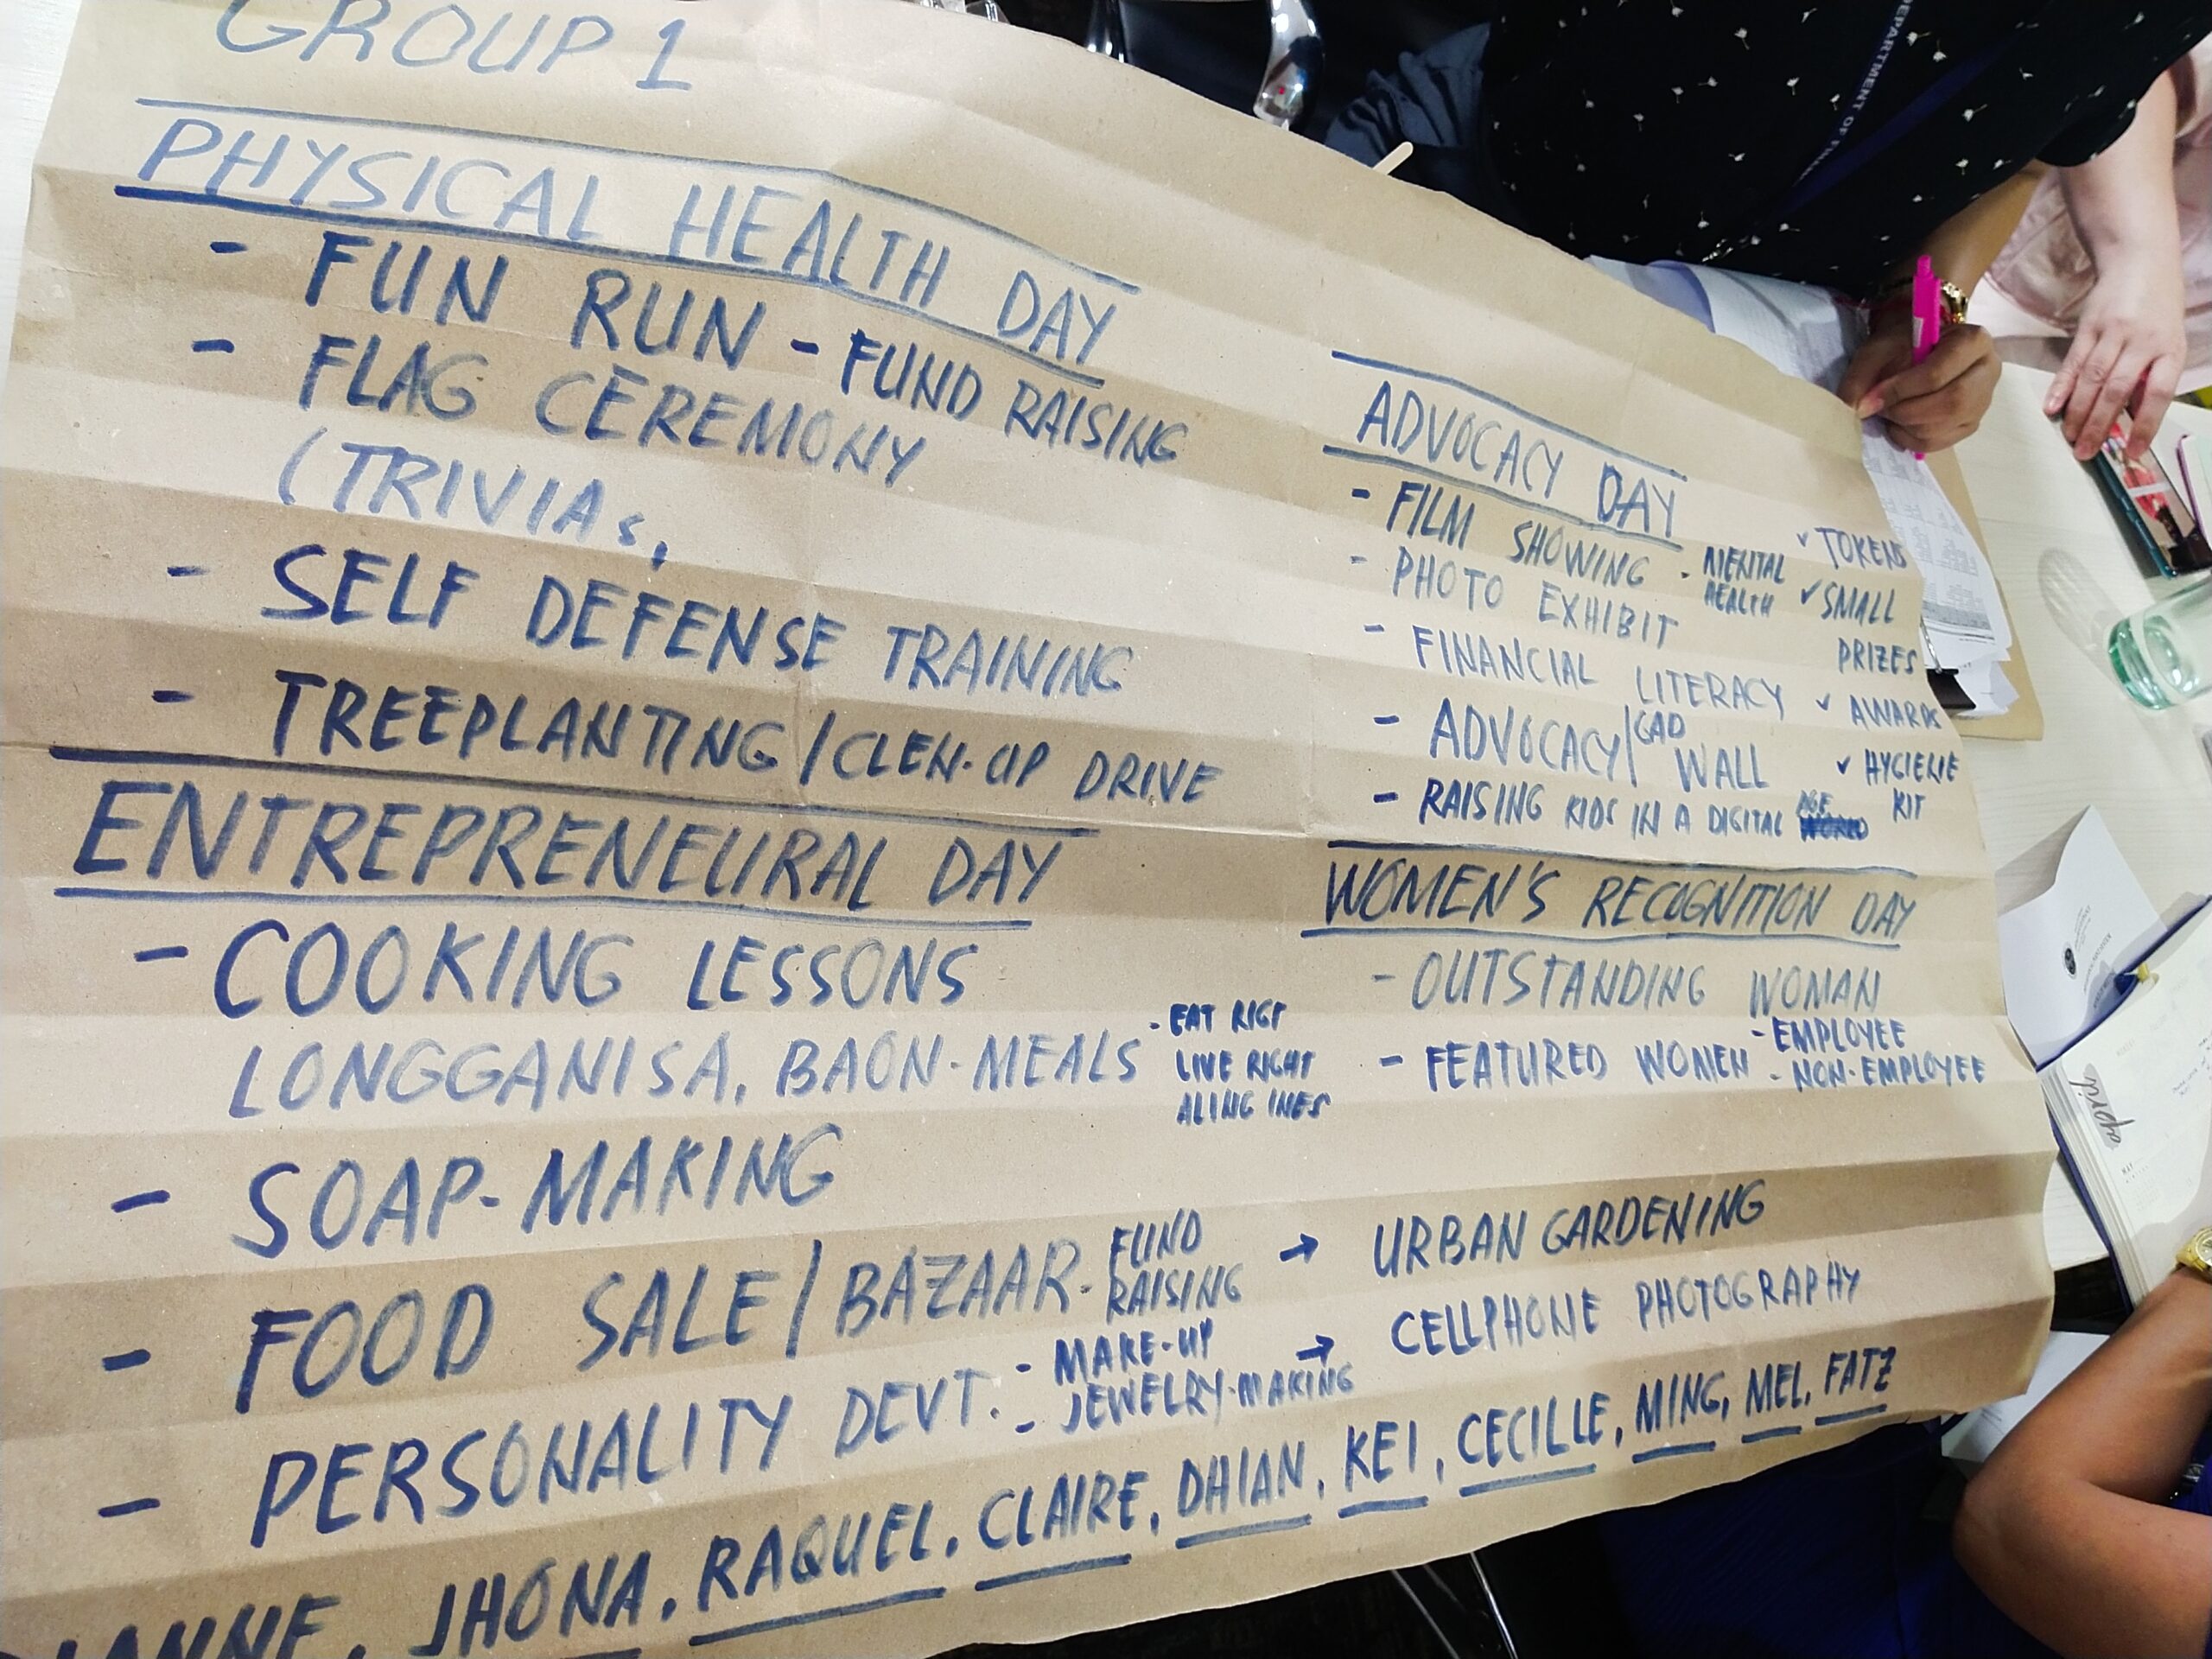 GROUP 1
PHYSICAL HEALTH DAY
- FUN RUN - FUND RAISING
- FLAG CEREMONY
(TRIVIAs,
- SELF DEFENSE TRAINING
- TREEPLANTING/CLEN-UP DRIVE
ENTREPRENEURAL DAY
- COOKING LESSONS
LONGGANISA, BAON-MEALS
- EAT RIGT
LIVE RIGHT
ALING INES
- SOAP-MAKING
- FOOD SALE/BAZAAR-FUND
RAISING
- PERSONALITY DEVT. - MAKE-UP
- JEWELRY-MAKING
ADVOCACY DAY
- FILM SHOWING - MENTAL
HEALTH
- PHOTO EXHIBIT
- FINANCIAL LITERACY
- ADVOCACY/GAD WALL
- RAISING KIDS IN A DIGITAL AGE
✓ TOKENS
✓ SMALL
PRIZES
✓ AWARDS
✓ HYGIENE
KIT
WOMEN'S RECOGNITION DAY
- OUTSTANDING WOMAN
- FEATURED WOMEN - EMPLOYEE
- NON-EMPLOYEE
→ URBAN GARDENING
→ CELLPHONE PHOTOGRAPHY
JHONA, RAQUEL, CLAIRE, DHIAN, KEI, CECILLE, MING, MEL, FATZ
DEPARTMENT OF
april
MAY